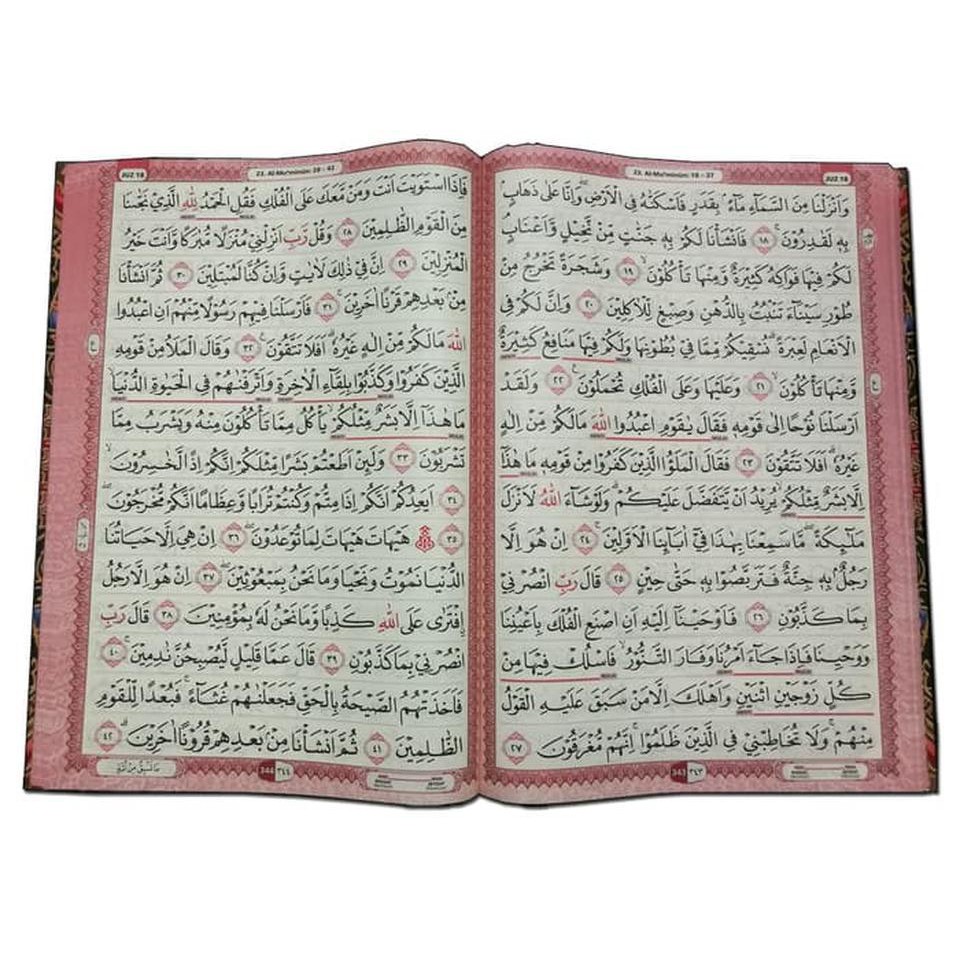 JUZ 18
23. Al-Mu'minūn: 18 - 27
وَاَنْزَلْنَا مِنَ السَّمَاۤءِ مَاۤءً ۢ بِقَدَرٍ فَاَسْكَنّٰهُ فِى الْاَرْضِۖ وَاِنَّا عَلٰى ذَهَابٍ ۢ
بِهٖ لَقٰدِرُوْنَ ۚ ١٨ فَاَنْشَأْنَا لَكُمْ بِهٖ جَنّٰتٍ مِّنْ نَّخِيْلٍ وَّاَعْنَابٍۘ
لَكُمْ فِيْهَا فَوَاكِهُ كَثِيْرَةٌ وَّمِنْهَا تَأْكُلُوْنَ ۙ ١٩ وَشَجَرَةً تَخْرُجُ مِنْ
طُوْرِ سَيْنَاۤءَ تَنْۢبُتُ بِالدُّهْنِ وَصِبْغٍ لِّلْاٰكِلِيْنَ ٢٠ وَاِنَّ لَكُمْ فِى
الْاَنْعَامِ لَعِبْرَةً ۗ نُسْقِيْكُمْ مِّمَّا فِيْ بُطُوْنِهَا وَلَكُمْ فِيْهَا مَنَافِعُ كَثِيْرَةٌ
وَّمِنْهَا تَأْكُلُوْنَ ۙ ٢١ وَعَلَيْهَا وَعَلَى الْفُلْكِ تُحْمَلُوْنَ ࣖ ٢٢ وَلَقَدْ
اَرْسَلْنَا نُوْحًا اِلٰى قَوْمِهٖ فَقَالَ يٰقَوْمِ اعْبُدُوا اللّٰهَ مَا لَكُمْ مِّنْ اِلٰهٍ
غَيْرُهٗۗ اَفَلَا تَتَّقُوْنَ ٢٣ فَقَالَ الْمَلَؤُا الَّذِيْنَ كَفَرُوْا مِنْ قَوْمِهٖ مَا هٰذَآ
اِلَّا بَشَرٌ مِّثْلُكُمْۙ يُرِيْدُ اَنْ يَّتَفَضَّلَ عَلَيْكُمْۗ وَلَوْ شَاۤءَ اللّٰهُ لَاَنْزَلَ
مَلٰۤىِٕكَةً ۖ مَّا سَمِعْنَا بِهٰذَا فِيْٓ اٰبَاۤىِٕنَا الْاَوَّلِيْنَ ۚ ٢٤ اِنْ هُوَ اِلَّا
رَجُلٌ ۢ بِهٖ جِنَّةٌ فَتَرَبَّصُوْا بِهٖ حَتّٰى حِيْنٍ ٢٥ قَالَ رَبِّ انْصُرْنِيْ
بِمَا كَذَّبُوْنِ ٢٦ فَاَوْحَيْنَآ اِلَيْهِ اَنِ اصْنَعِ الْفُلْكَ بِاَعْيُنِنَا
وَوَحْيِنَا فَاِذَا جَاۤءَ اَمْرُنَا وَفَارَ التَّنُّوْرُۙ فَاسْلُكْ فِيْهَا مِنْ
كُلٍّ زَوْجَيْنِ اثْنَيْنِ وَاَهْلَكَ اِلَّا مَنْ سَبَقَ عَلَيْهِ الْقَوْلُ
مِنْهُمْۚ وَلَا تُخَاطِبْنِيْ فِى الَّذِيْنَ ظَلَمُوْاۚ اِنَّهُمْ مُّغْرَقُوْنَ ٢٧
343 ٣٤٣
23. Al-Mu'minūn: 28 - 42
JUZ 18
فَاِذَا اسْتَوَيْتَ اَنْتَ وَمَنْ مَّعَكَ عَلَى الْفُلْكِ فَقُلِ الْحَمْدُ لِلّٰهِ الَّذِيْ نَجّٰىنَا
مِنَ الْقَوْمِ الظّٰلِمِيْنَ ٢٨ وَقُلْ رَّبِّ اَنْزِلْنِيْ مُنْزَلًا مُّبٰرَكًا وَّاَنْتَ خَيْرُ
الْمُنْزِلِيْنَ ٢٩ اِنَّ فِيْ ذٰلِكَ لَاٰيٰتٍ وَّاِنْ كُنَّا لَمُبْتَلِيْنَ ٣٠ ثُمَّ اَنْشَأْنَا
مِنْۢ بَعْدِهِمْ قَرْنًا اٰخَرِيْنَ ۚ ٣١ فَاَرْسَلْنَا فِيْهِمْ رَسُوْلًا مِّنْهُمْ اَنِ اعْبُدُوا
اللّٰهَ مَا لَكُمْ مِّنْ اِلٰهٍ غَيْرُهٗۗ اَفَلَا تَتَّقُوْنَ ࣖ ٣٢ وَقَالَ الْمَلَاُ مِنْ قَوْمِهِ
الَّذِيْنَ كَفَرُوْا وَكَذَّبُوْا بِلِقَاۤءِ الْاٰخِرَةِ وَاَتْرَفْنٰهُمْ فِى الْحَيٰوةِ الدُّنْيَاۙ
مَا هٰذَآ اِلَّا بَشَرٌ مِّثْلُكُمْۙ يَأْكُلُ مِمَّا تَأْكُلُوْنَ مِنْهُ وَيَشْرَبُ مِمَّا
تَشْرَبُوْنَ ۙ ٣٣ وَلَىِٕنْ اَطَعْتُمْ بَشَرًا مِّثْلَكُمْ اِنَّكُمْ اِذًا لَّخٰسِرُوْنَ ۙ
٣٤ اَيَعِدُكُمْ اَنَّكُمْ اِذَا مِتُّمْ وَكُنْتُمْ تُرَابًا وَّعِظَامًا اَنَّكُمْ مُّخْرَجُوْنَ ۖ
٣٥ هَيْهَاتَ هَيْهَاتَ لِمَا تُوْعَدُوْنَ ۖ ٣٦ اِنْ هِيَ اِلَّا حَيَاتُنَا
الدُّنْيَا نَمُوْتُ وَنَحْيَا وَمَا نَحْنُ بِمَبْعُوْثِيْنَ ۖ ٣٧ اِنْ هُوَ اِلَّا رَجُلُ
ِۨافْتَرٰى عَلَى اللّٰهِ كَذِبًا وَّمَا نَحْنُ لَهٗ بِمُؤْمِنِيْنَ ٣٨ قَالَ رَبِّ
انْصُرْنِيْ بِمَا كَذَّبُوْنِ ٣٩ قَالَ عَمَّا قَلِيْلٍ لَّيُصْبِحُنَّ نٰدِمِيْنَ ۚ ٤٠
فَاَخَذَتْهُمُ الصَّيْحَةُ بِالْحَقِّ فَجَعَلْنٰهُمْ غُثَاۤءًۚ فَبُعْدًا لِّلْقَوْمِ
الظّٰلِمِيْنَ ٤١ ثُمَّ اَنْشَأْنَا مِنْۢ بَعْدِهِمْ قُرُوْنًا اٰخَرِيْنَ ۗ ٤٢
مَا تَسْبِقُ مِنْ اُمَّةٍ
344 ٣٤٤